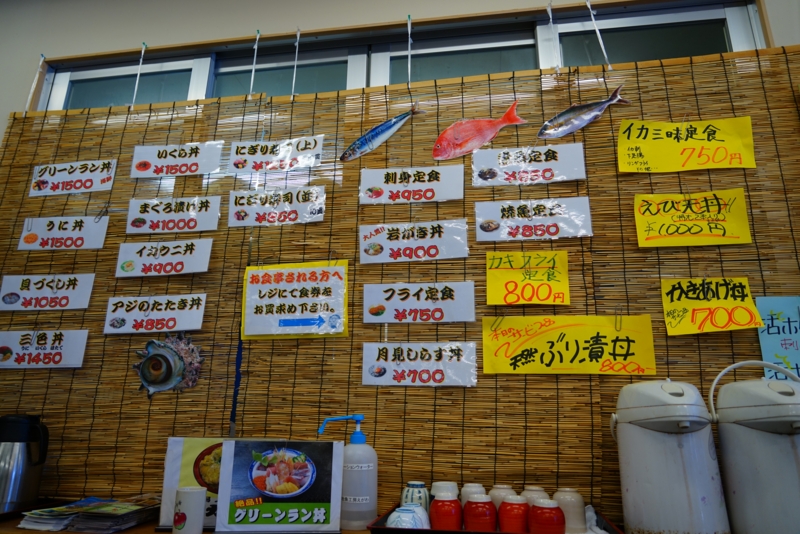 グリーンラン丼
¥1500
うに丼
¥1500
貝づくし丼
¥1050
三色丼
¥1450
いくら丼
¥1500
まぐろ漬け丼
¥1000
イカウニ丼
¥900
アジのたたき丼
¥850
にぎり寿司(上)
にぎり寿司(並)
お食事される方へ
レジにて食券を
お買求め下さい。
刺身定食
¥950
大人気!!
岩がき丼
¥900
フライ定食
¥750
月見しらす丼
¥700
焼魚定食
¥850
カキフライ
定食
800円
イカ三味定食
750円
えび天丼
¥1000円
かきあげ丼
700円
天然ぶり漬丼
800円
絶品!!
グリーンラン丼